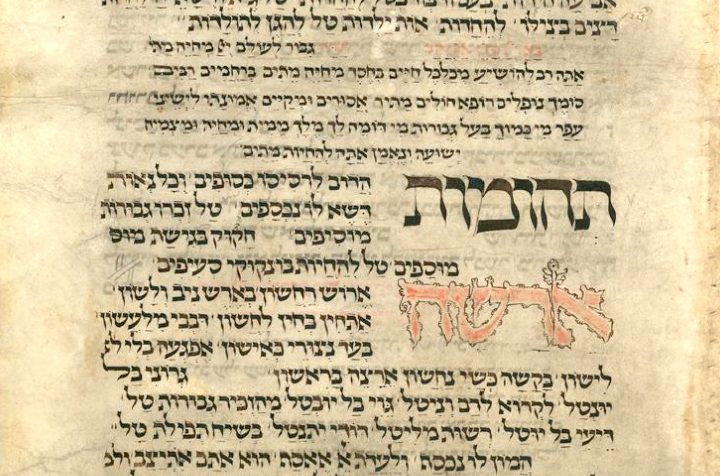 רצים בצילו להחדות אות ילדות טל להגן לתולדות
גבור לעולם מחיה מתי
אתה רב להושיע מכלכל חיים בחסד מיחיה מתים ברחמיים רבים
סומך נופלים רופא חולים מתיר אסורים ומקיים אמונתו לישיני
עפר מי כמיוך בעל גבורות מי דומה לך מלך ממית ומחיה ומצמיח
ישועה ונאמן אתה להחיות מתים
תהומות
הדום לרסיסו נכספים וכל נאות
דשא לו נכספים טל זכרו גבורות
מוסיפים חקוק בגישת מוס
מוספים טל להחיות בו נקוקי סעיפים
ארשה
ארוש רחשון בארש ניב ולשון
אתחין בחין לחשון
בער נצורי באישון אפגעה בלי לא
לישון בקשה כשי נחשון ארצה בראשון גרוני בל
לקרוא לרם וניטל גוי בל יובטל מהזכיר גבורות טל
דיעי בל יוטל רשות מליטל יתנטל בשיח תפילת טל
המון לו הוא